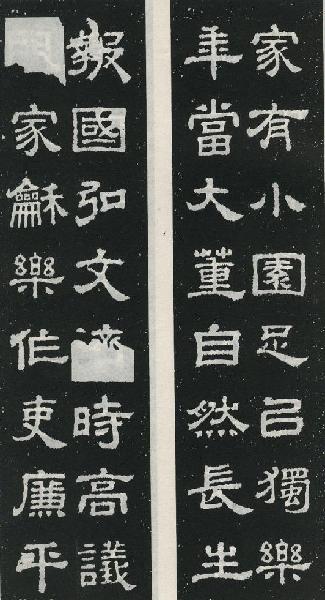 家有小園足㠯獨樂
年當大董自然長生
報國弘文濟時高議
家龢樂作吏廉平